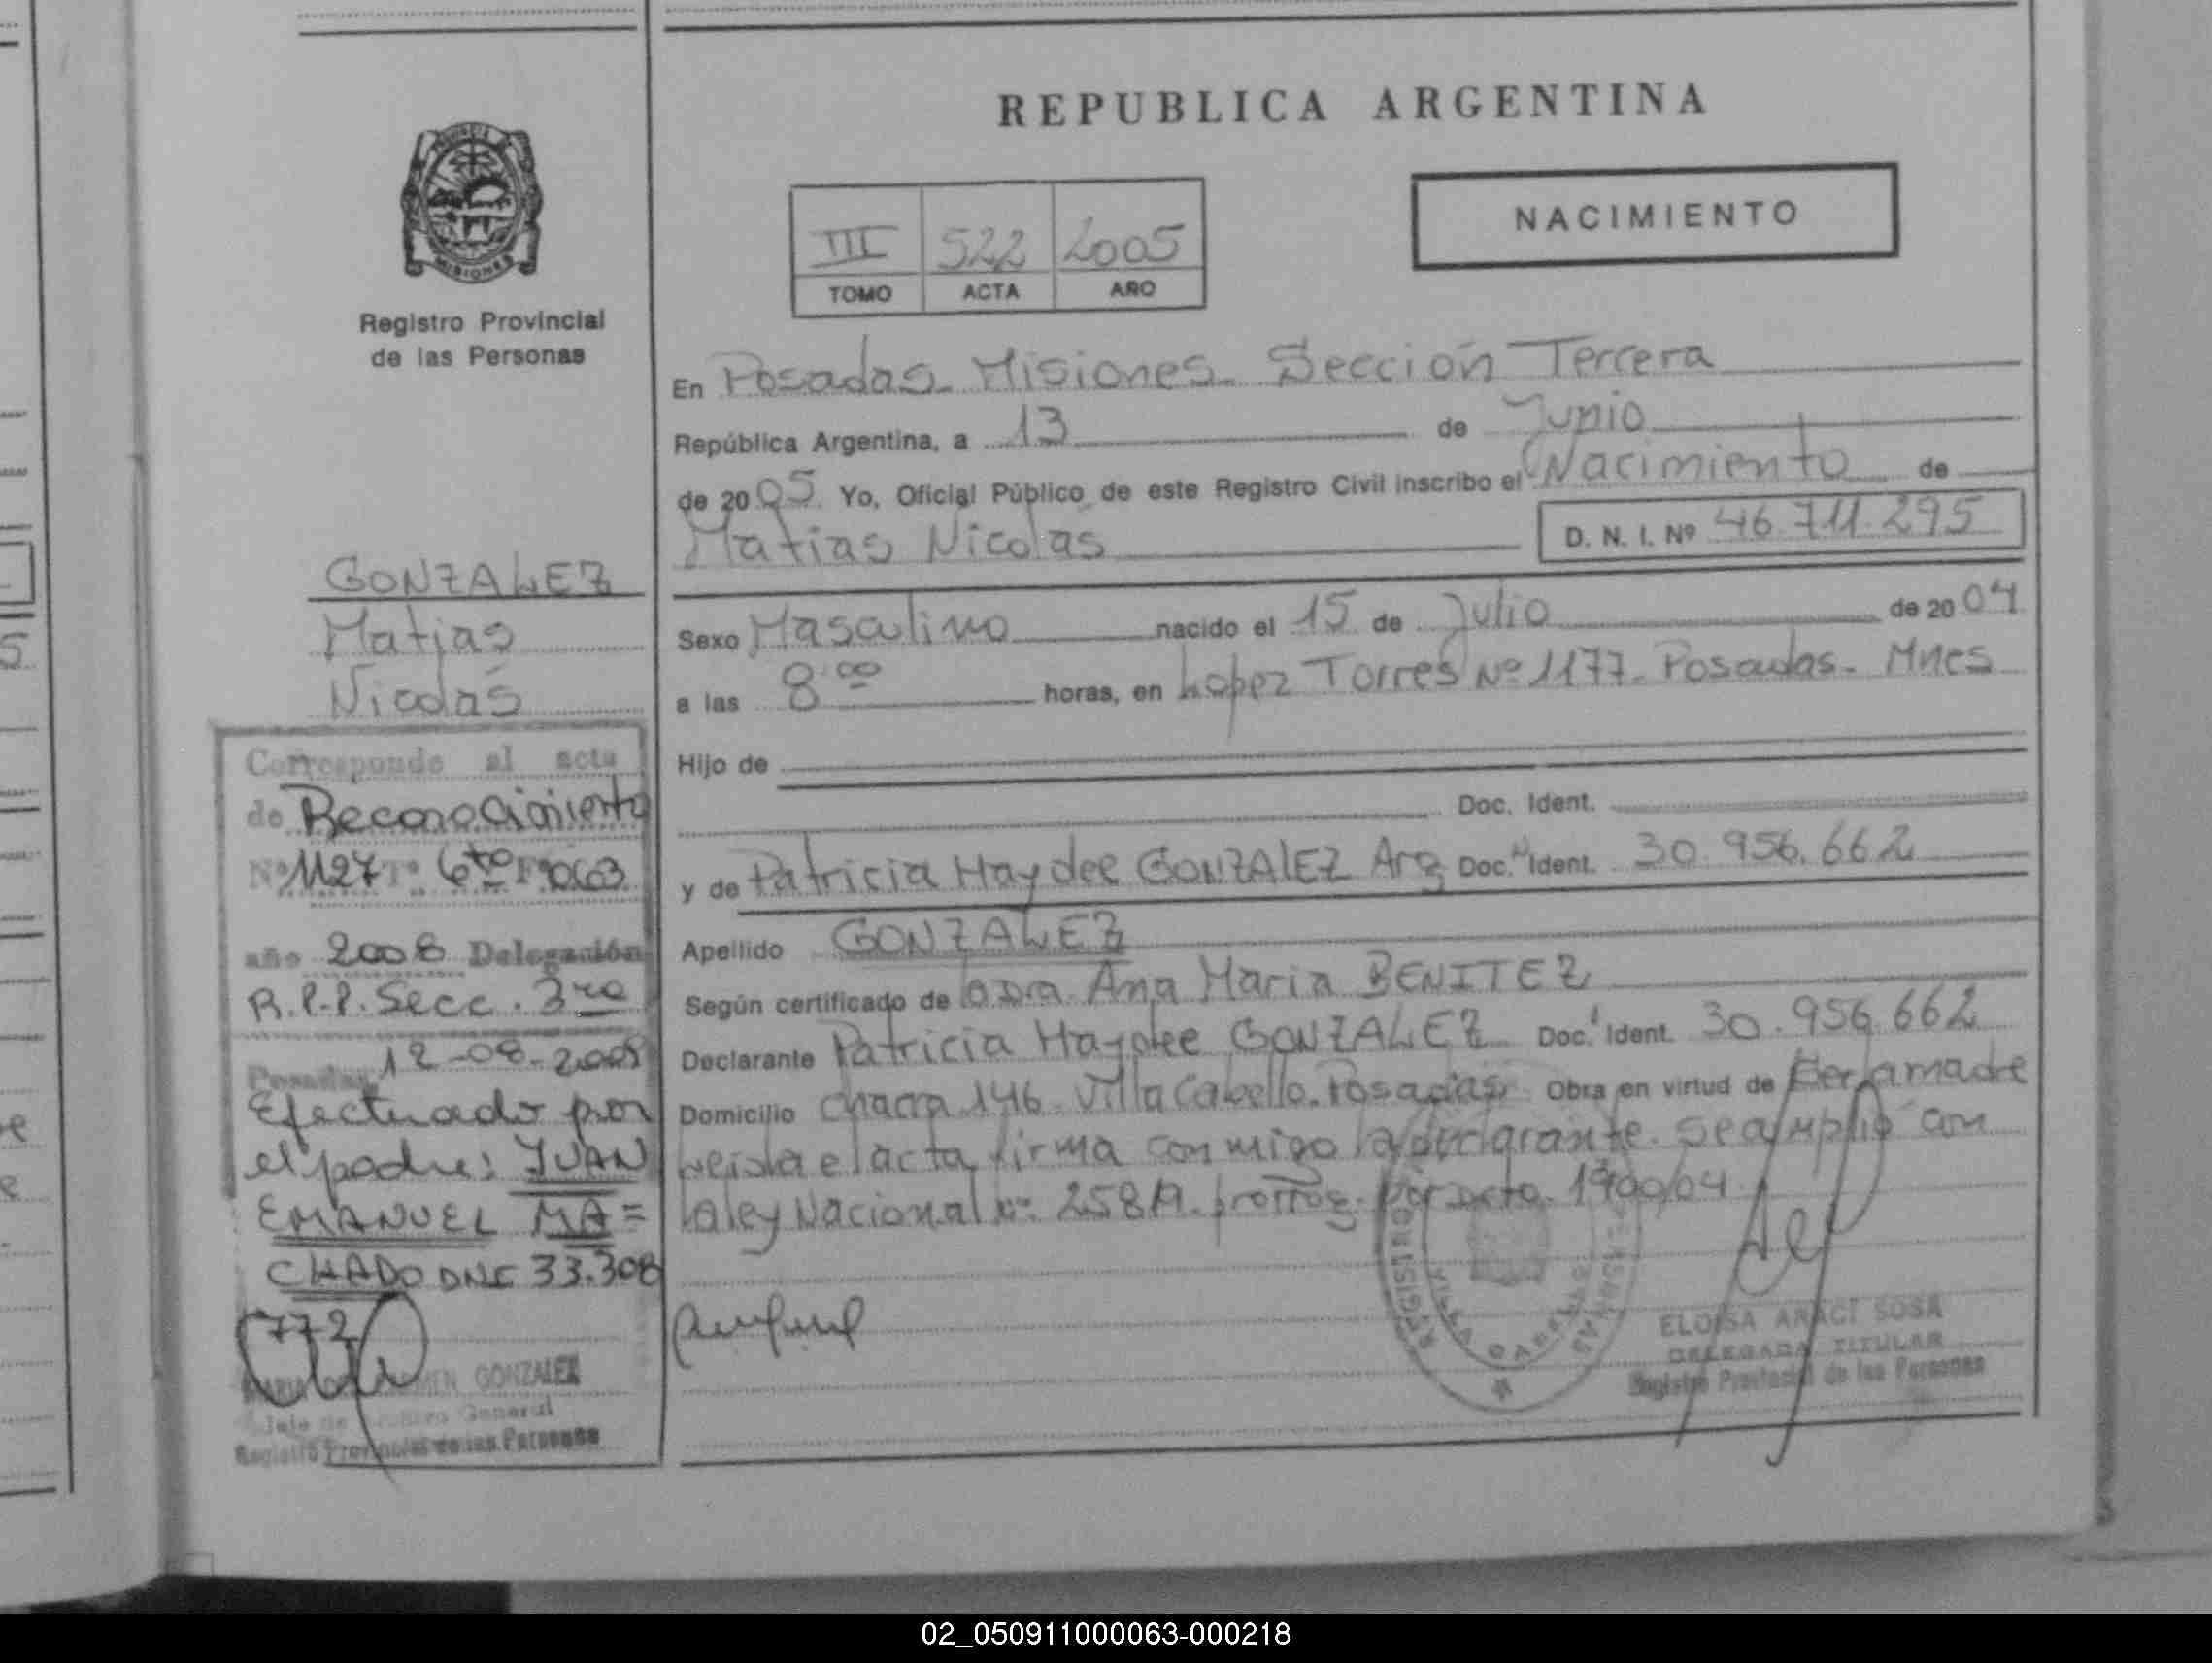 REPUBLICA ARGENTINA
NACIMIENTO
III 522 2005
TOMO ACTA AÑO
PROVINCIA
MISIONES
Registro Provincial
de las Personas
En Posadas Misiones. Sección Tercera
República Argentina, a 13 de Junio
de 2005 Yo, Oficial Público de este Registro Civil inscribo el Nacimiento de
Matias Nicolás D. N. I. Nº 46.711.295
Sexo Masculino nacido el 15 de Julio de 2004
a las 8:00 horas, en Lopez Torres Nº 1177. Posadas. Mnes
Hijo de
Doc. Ident.
y de Patricia Haydee GONZALEZ Arg Doc. Ident. 30.956.662
Apellido GONZALEZ
Según certificado de Ana Maria BENITEZ
Declarante Patricia Haydee GONZALEZ Doc. Ident. 30.956.662
Domicilio Chacra 146. Villa Cabello. Posadas Obra en virtud de Ser la madre
leida el acta firma conmigo la declarante. Se amplió con
la ley Nacional nº 25819. prorrog. por Dcto. 1900/04
ELOISA ARACI SOSA
DELEGADA TITULAR
Registro Provincial de las Personas
GONZALEZ
Matias
Nicolás
Corresponde al acta
de Reconocimiento
Nº 1127 Tº 6to Fº 063
año 2008 Delegación
R.P.P. Secc. 3ra
Posadas, 12-08-2008
Efectuado por
el padre: JUAN
EMANUEL MA=
CHADO DNI 33.308
772
GONZALEZ
Jefe de Archivo General
Registro Provincial de las Personas
02_050911000063-000218